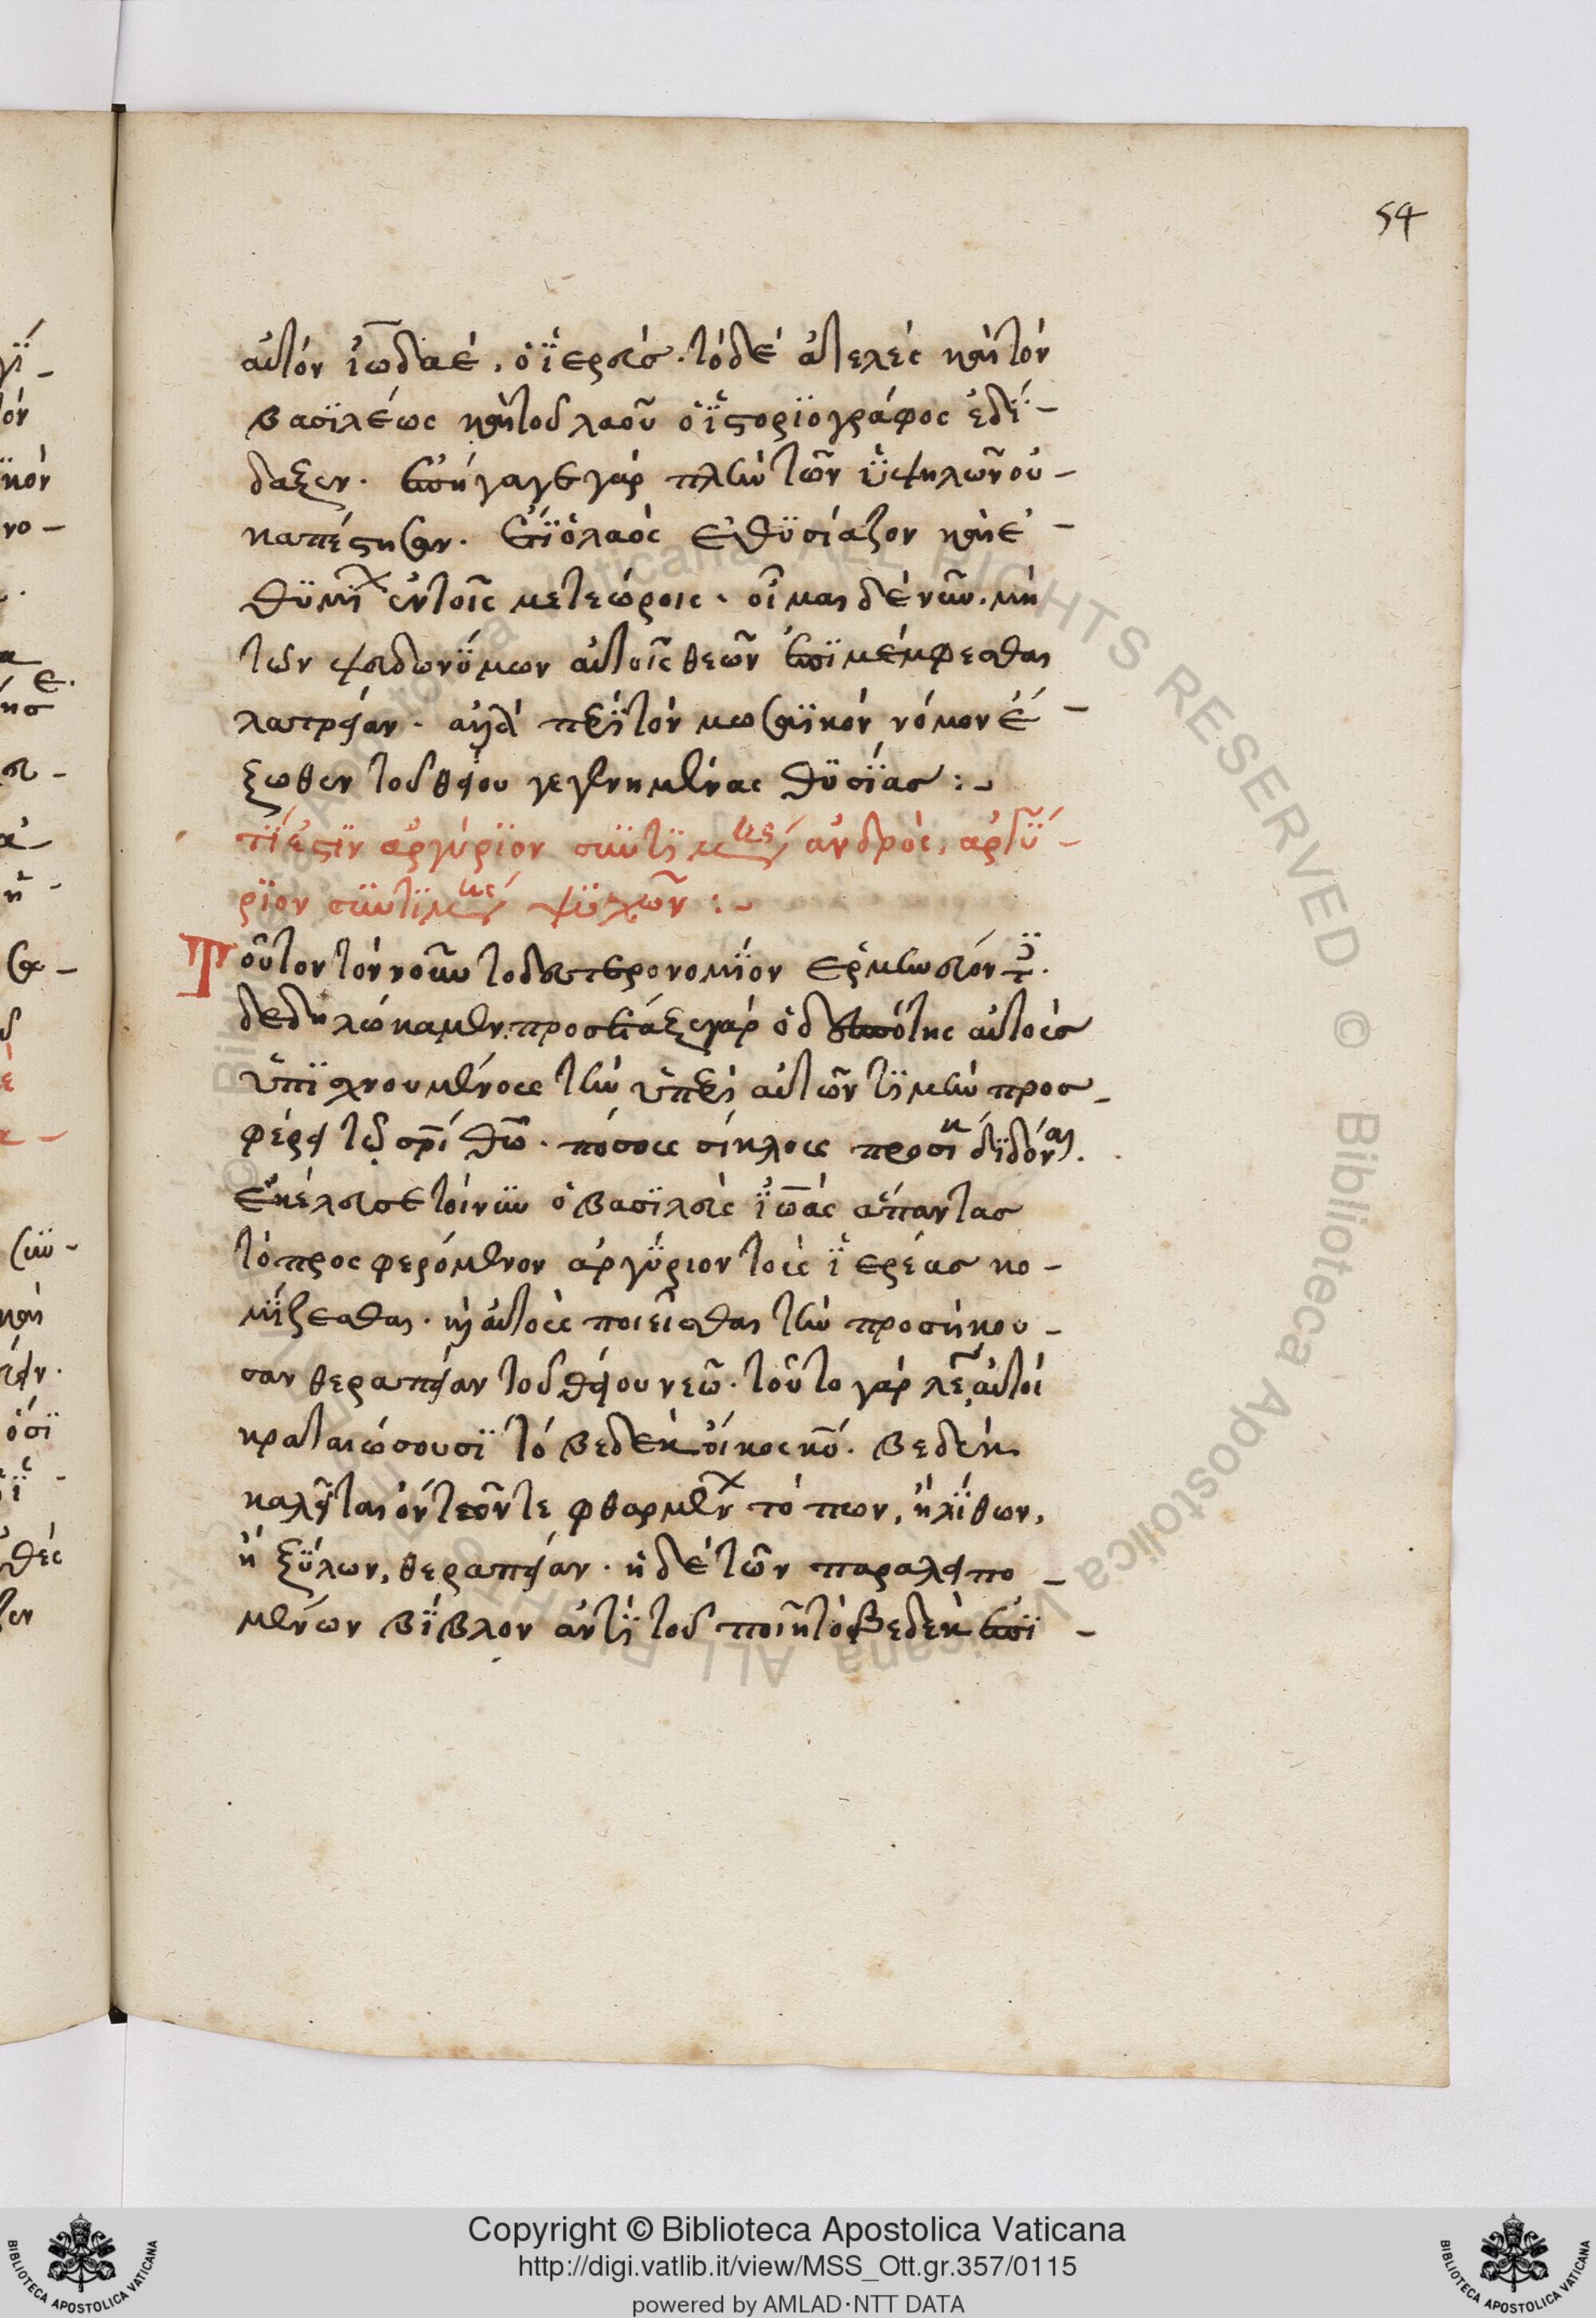 54
αὐτὸν ἰωδαέ, ὁ ἱερεύσ. τὸ δὲ ἀτελὲς καὶ τὸν
βασιλέως καὶ τοῦ λαοῦ ὁ ἱστοριογράφος ἐδί-
δαξεν. ἐπήγαγε γὰρ πλὴν τῶν ὑψηλῶν οὐ-
κ ἀπέστησαν. ἔτι ὁ λαὸς ἐθυσίαζον καὶ ἐ-
θυμί ἐν τοῖς μετεώροις. οἶμαι δὲ νῦν. μὴ
τῶν ψευδωνύμων αὐτοῖς θεῶν ἐπιμέμφεσθαι
λατρείαν. ἀλλὰ περὶ τὸν μωσαϊκὸν νόμον ἔ-
ξωθεν τοῦ θείου γεγενημένας θυσίας :
τί ἐστιν ἀργύριον συντιμήσεως ἀνδρός, ἀργύ-
ριον συντιμήσεως ψυχῶν :
Τοῦτον τὸν νοῦν τὸ δευτερονόμιον ἑρμηνεῦον
δεδηλώκαμεν. προστάξε γὰρ ὁ δεσπότης αὐτοὺσ
ὑπισχνουμένους τὴν ὑπὲρ αὐτῶν τιμὴν προσ-
φέρειν τῷ σρὶ θῶ. πόσους σίκλους προσήκει διδόναι.
ἐκέλευσε τοίνυν ὁ βασιλεὺς ἰωὰς ἅπαντας
τὸ προσφερόμενον ἀργύριον τοὺς ἱερέας κο-
μίζεσθαι. καὶ αὐτοὺς ποιεῖσθαι τὴν προσήκου-
σαν θεραπείαν τοῦ θείου νεῶ. τοῦτο γὰρ λέ αὐτοὶ
κραταιώσουσι τὸ βεδεὴκ οἴκος κυ. βεδεὴκ
καλεῖται ὄντε φθαρμέν τόπων, ἢ λίθων,
ἢ ξύλων, θεραπείαν. ἡ δὲ τῶν παραλειπο-
μένων βίβλον ἀντὶ τοῦ ποιῆ τὸ βεδεὴκ ἐπι-
Copyright © Biblioteca Apostolica Vaticana
http://digi.vatlib.it/view/MSS_Ott.gr.357/0115
powered by AMLAD·NTT DATA